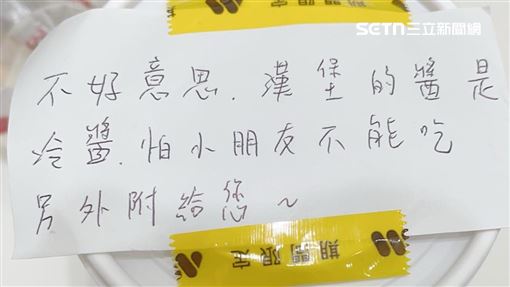 期間限定
SETN三立新聞網
不好意思.漢堡的醬是
冷醬.怕小朋友不能吃
另外附給您~
期間限定